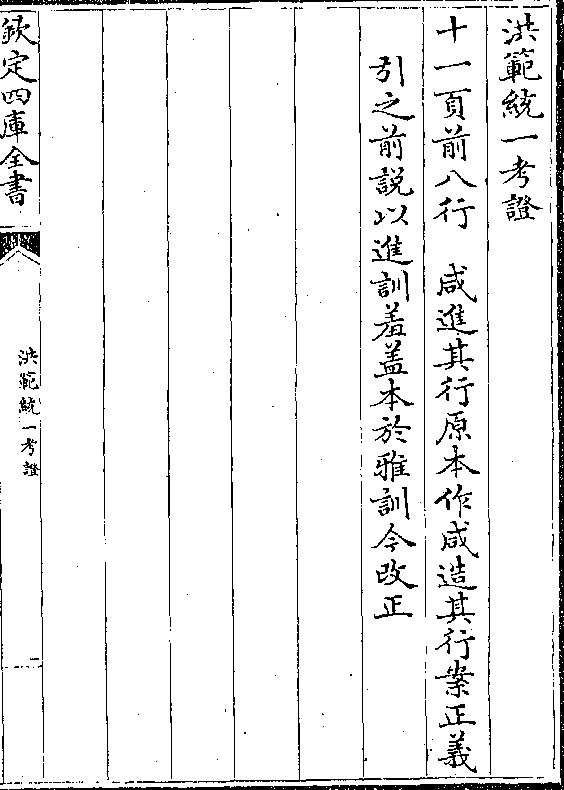 洪範統一考證
十一頁前八行　咸進其行原本作咸造其行案正義
引之前說以進訓羞盖本於雅訓今改正
欽定四庫全書
洪範統一考證